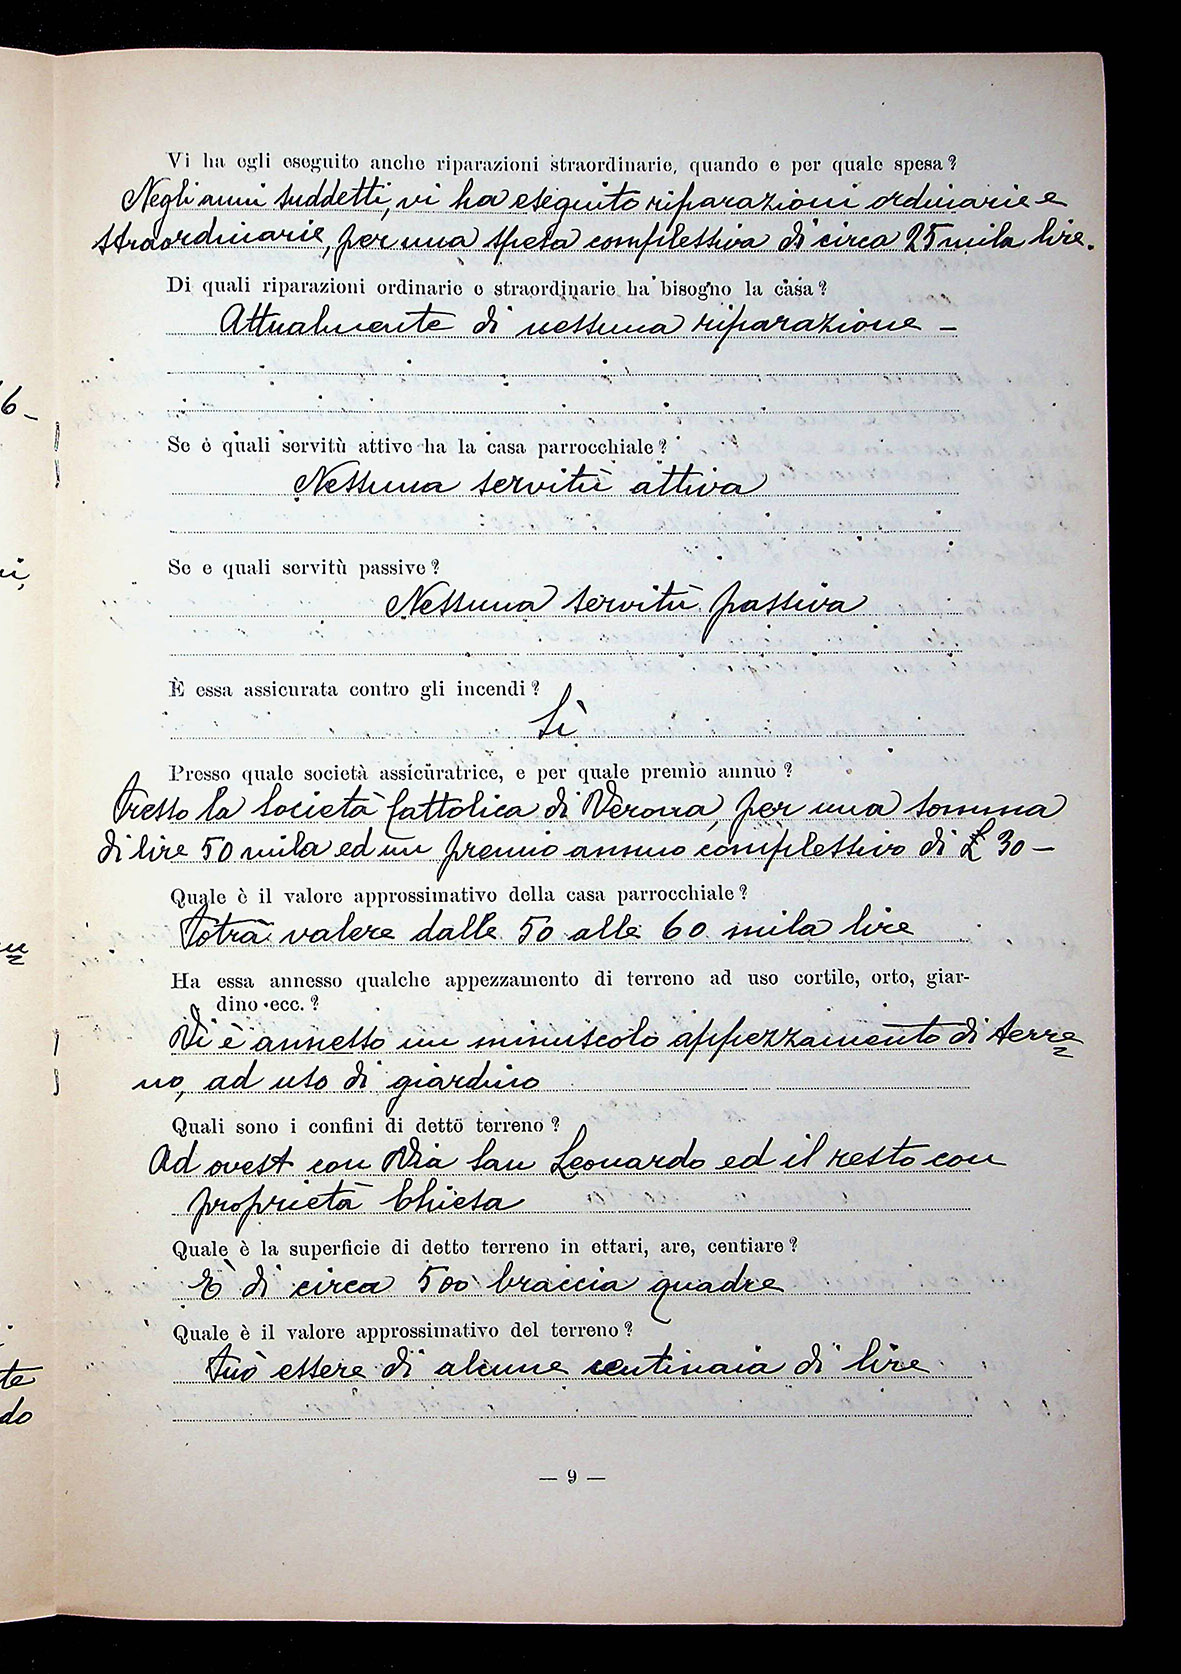 Vi ha egli eseguito anche riparazioni straordinarie, quando e per quale spesa?
Negli anni suddetti, vi ha eseguito riparazioni ordinarie e
straordinarie, per una spesa complessiva di circa 25 mila lire.
Di quali riparazioni ordinarie e straordinarie ha bisogno la casa?
Attualmente di nessuna riparazione –
6 –
Se e quali servitù attive ha la casa parrocchiale?
Nessuna servitù attiva
Se e quali servitù passive?
Nessuna servitù passiva
È essa assicurata contro gli incendi?
Sì
Presso quale società assicuratrice, e per quale premio annuo?
Presso la Società Cattolica di Verona, per una somma
di lire 50 mila ed un premio annuo complessivo di £ 30 –
Quale è il valore approssimativo della casa parrocchiale?
Potrà valere dalle 50 alle 60 mila lire
Ha essa annesso qualche appezzamento di terreno ad uso cortile, orto, giar-
dino ecc.?
Vi è annesso un minuscolo appezzamento di terre
no, ad uso di giardino
Quali sono i confini di detto terreno?
Ad ovest con Via San Leonardo ed il resto con
proprietà Chiesa
Quale è la superficie di detto terreno in ettari, are, centiare?
È di circa 500 braccia quadre
Quale è il valore approssimativo del terreno?
Può essere di alcune centinaia di lire
te
do
— 9 —